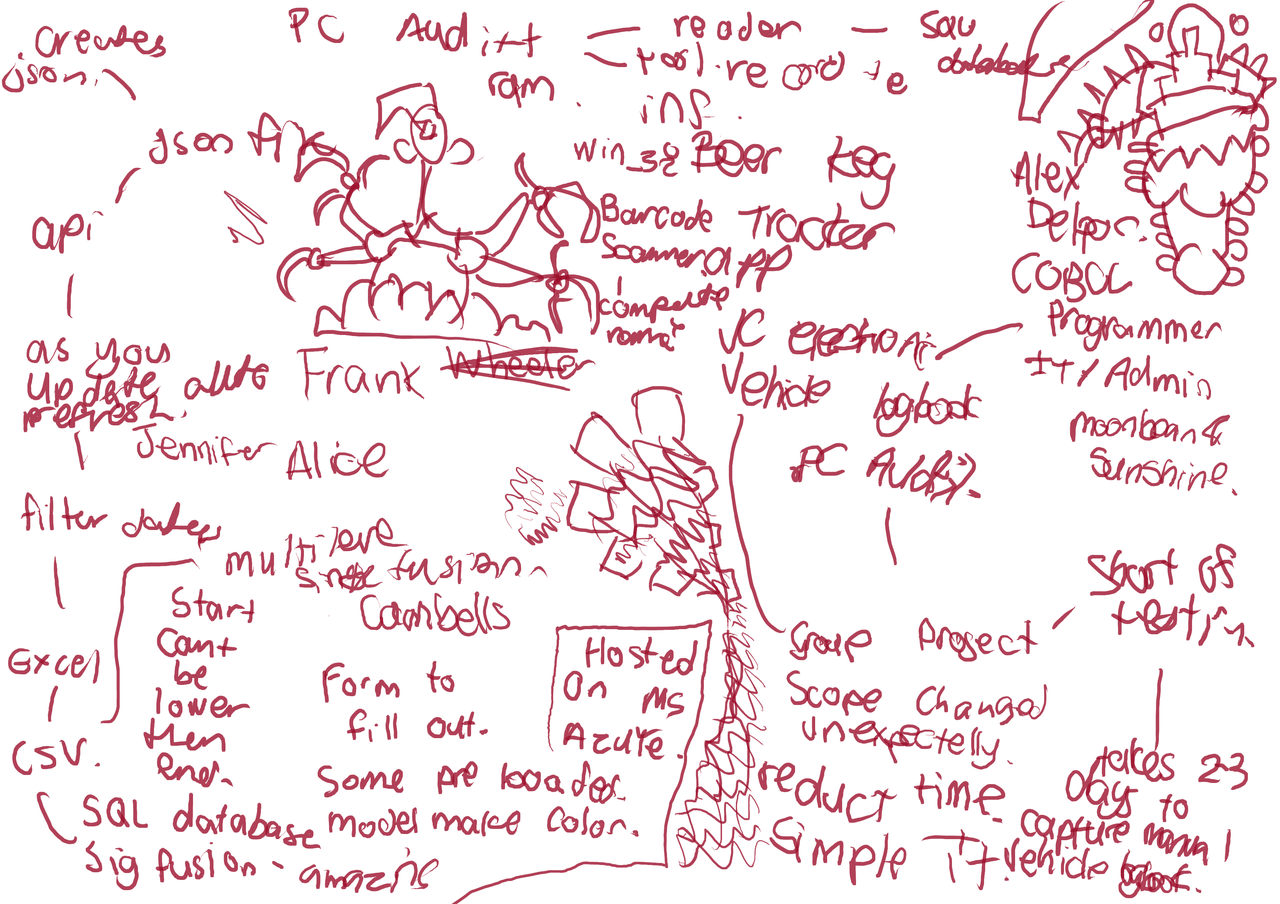 PC Auditt reader squ
ram tool. record te database
ins.
Creates
json.
json file
api
as you
update auto
refresh.
filter dates
Excel
CSV.
SQL database
Sig fusion - amazing
win_32 Beer keg
Barcode Tracter
Scanner app
compute
name
Frank Wheeler
Jennifer Alice
VC electroni
Vehicle logbook
PC Audit.
Alex
Delpor.
COBOL
Programmer
IT / Admin
moonbean &
Sunshine.
multileve
single fusion.
Cambells
Start
Cant
be
lower
then
end.
Form to
fill out.
Some pre loaded.
model make color.
Hosted
On MS
Azure.
Group Project
Scope Changed
unexpectelly.
reduct time.
Simple IT.
Start of
testin
takes 2-3
day to
capture manual
Vehicle logbook.